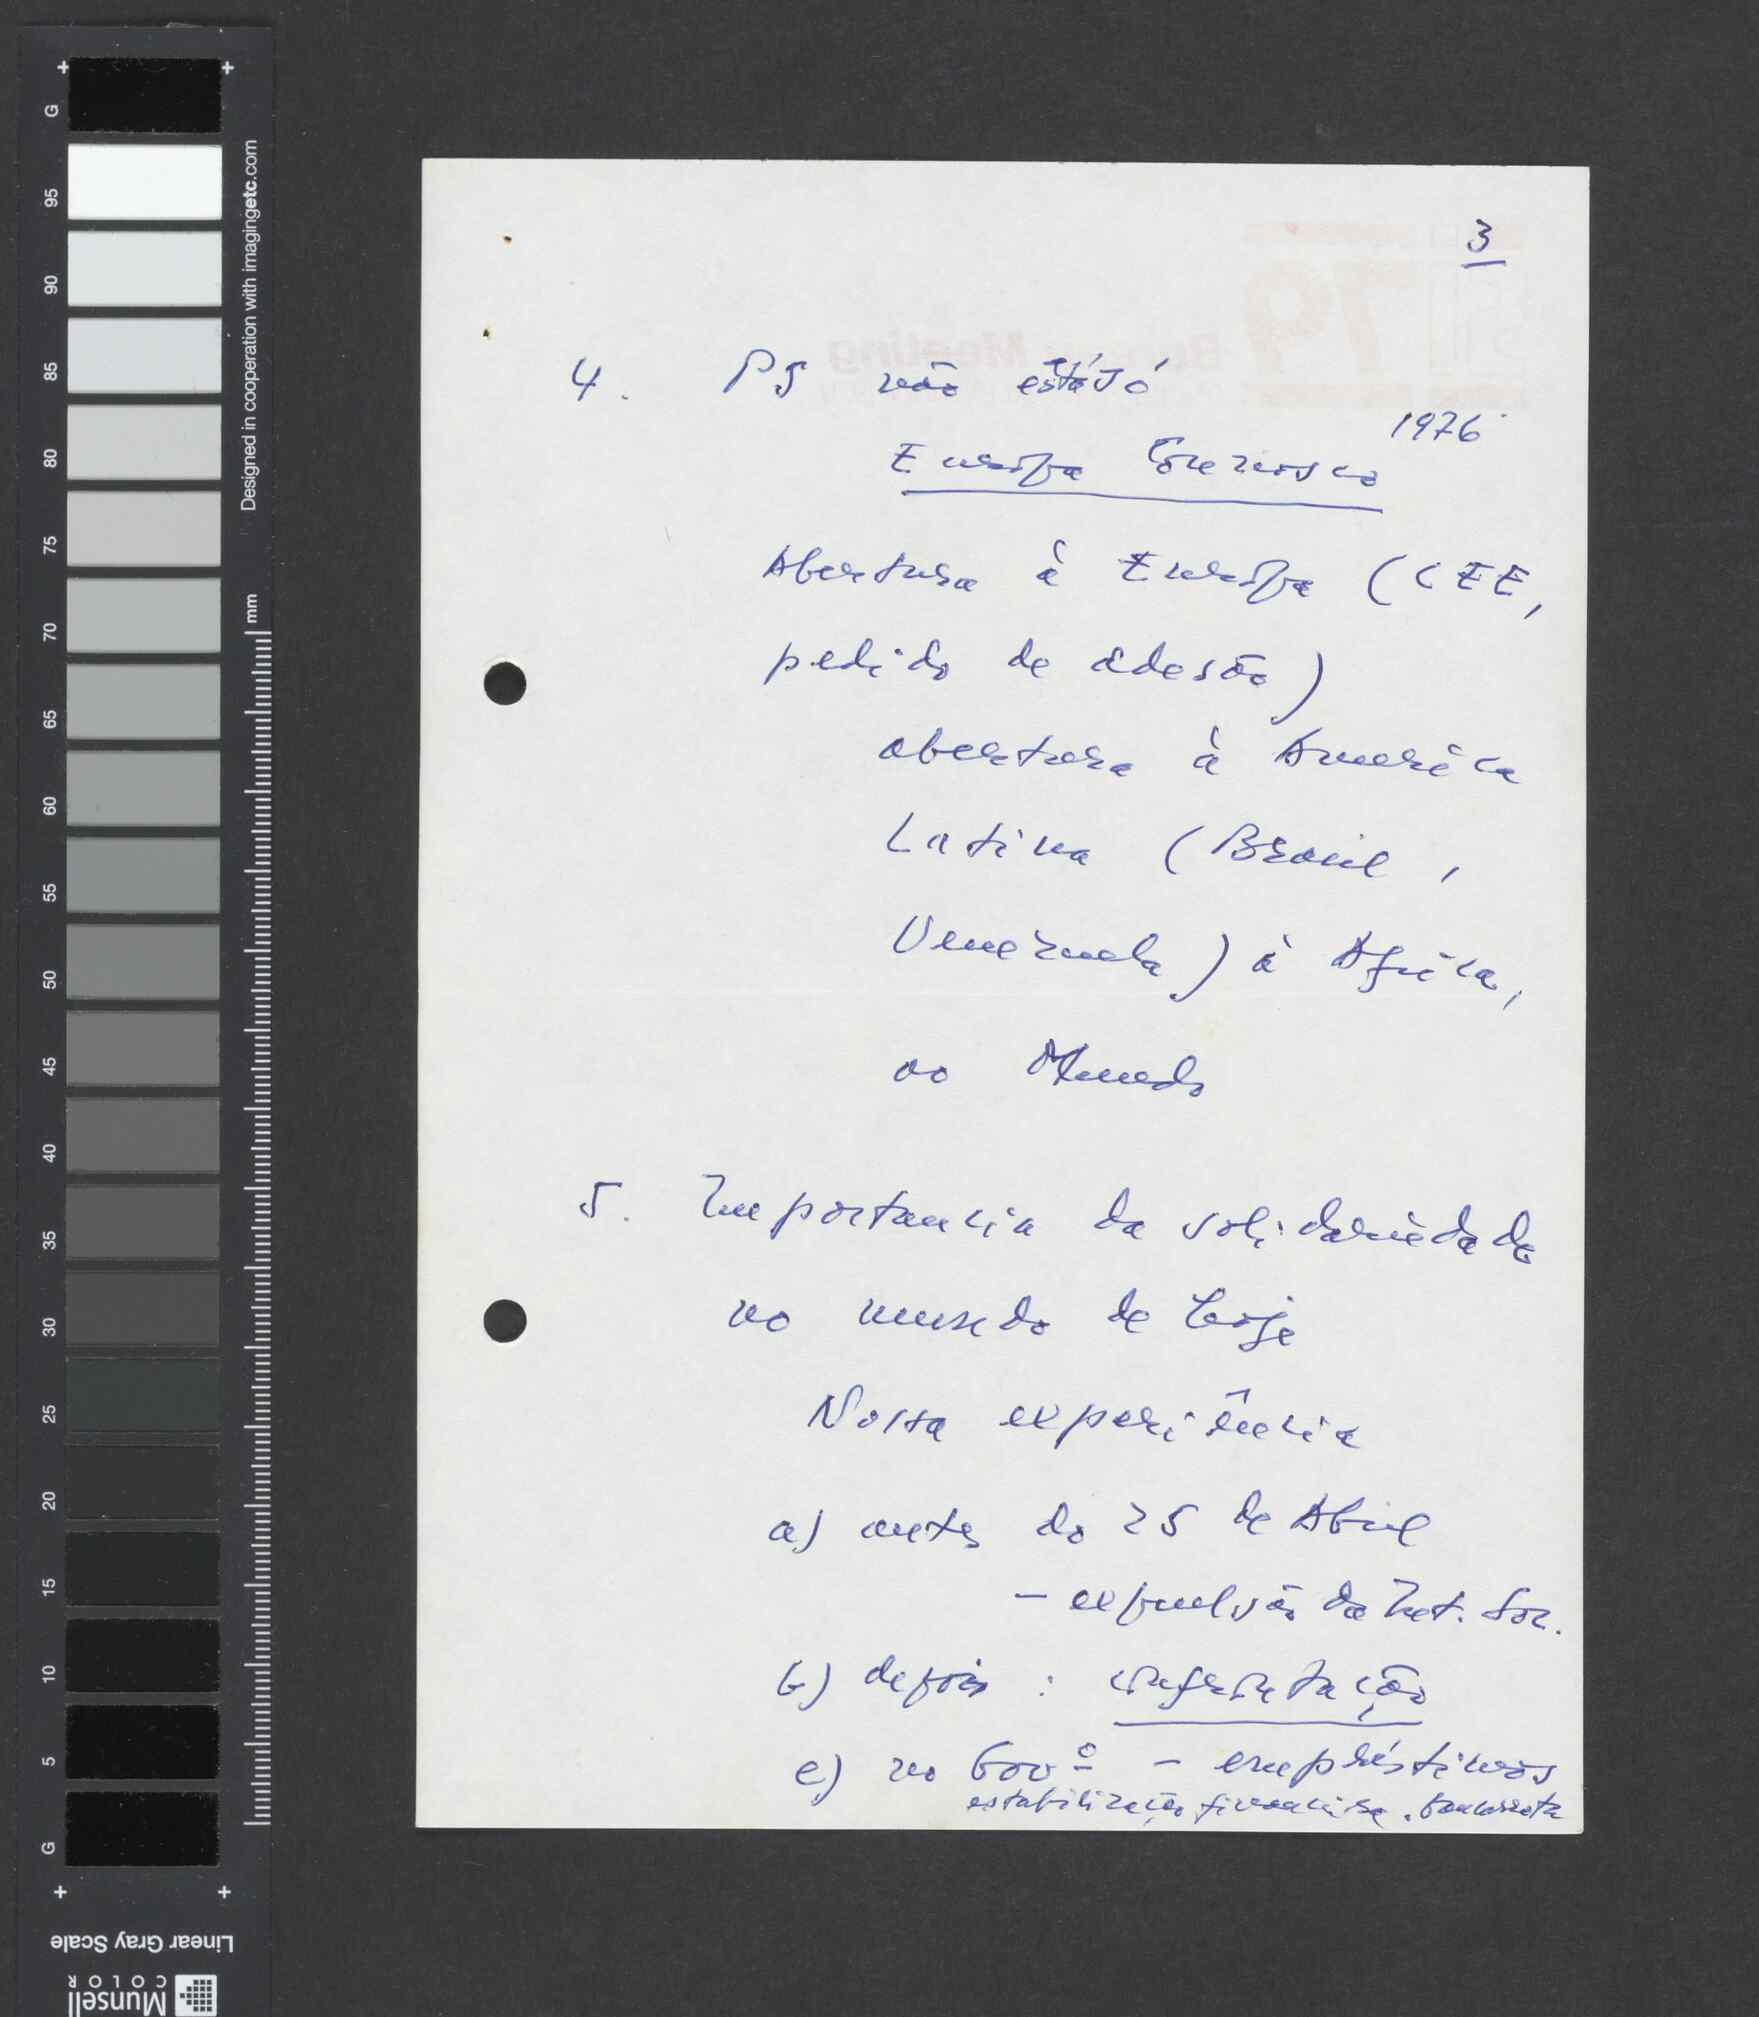 3
4. PS não está só
1976
Europa Connosco
Abertura à Europa (CEE,
pedido de adesão)
abertura à America
Latina (Brasil,
Venezuela) à Africa,
ao Mundo
5. Importancia da solidariedade
no mundo de hoje
Nossa experiência
a) antes do 25 de Abril
– expulsão da Int. Soc.
b) depois :
c) no Govº – empréstimos
estabilização financeira. bancarrota
Bureau Meeting
79
G
95
90
85
80
75
70
65
60
55
50
45
40
35
30
25
20
15
10
5
G
Designed in cooperation with imagingetc.com
mm
Linear Gray Scale
Munsell
COLOR